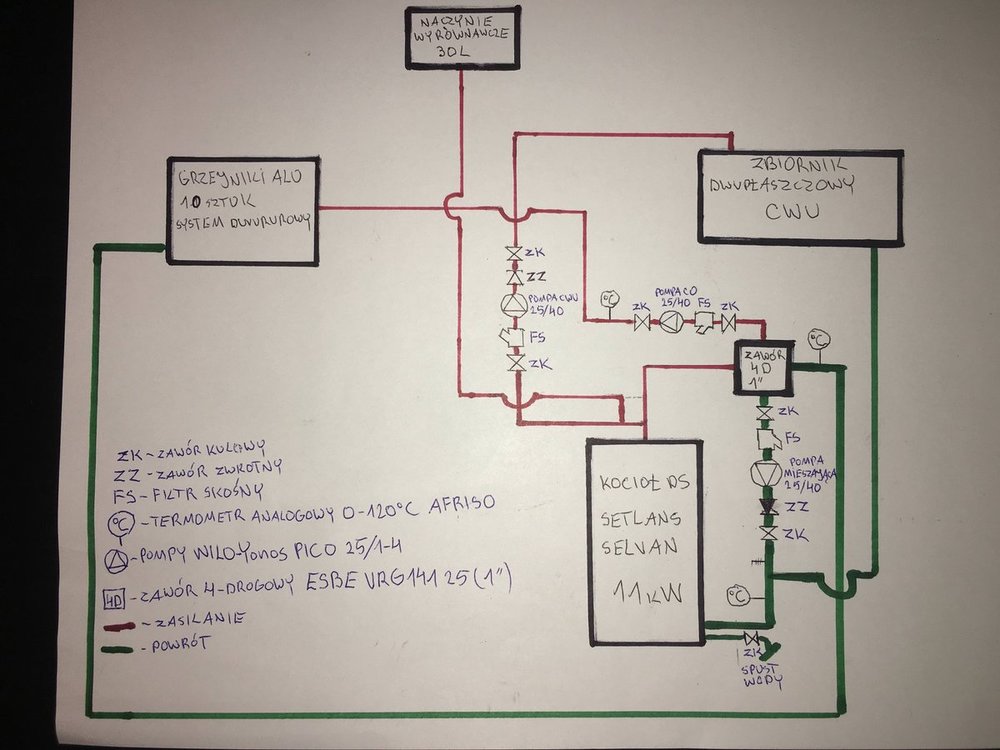 NACZYNIE
WYRÓWNAWCZE
30L
GRZEJNIKI ALU
10 SZTUK
SYSTEM DWURUROWY
ZBIORNIK
DWUPŁASZCZOWY
CWU
ZK
ZZ
POMPA CWU
25/40
FS
ZK
°C
POMPA CO
25/40
FS
ZK
ZK
°C
ZAWÓR
4D
1"
ZK
FS
POMPA
MIESZAJĄCA
25/40
ZZ
ZK
KOCIOŁ DS
SETLANS
SELVAN
11kW
°C
ZK
SPUST
WODY
ZK - ZAWÓR KULOWY
ZZ - ZAWÓR ZWROTNY
FS - FILTR SKOŚNY
°C - TERMOMETR ANALOGOWY 0-120°C AFRISO
- POMPY WILO-Yonos PICO 25/1-4
4D - ZAWÓR 4-DROGOWY ESBE VRG141 25 (1")
- ZASILANIE
- POWRÓT